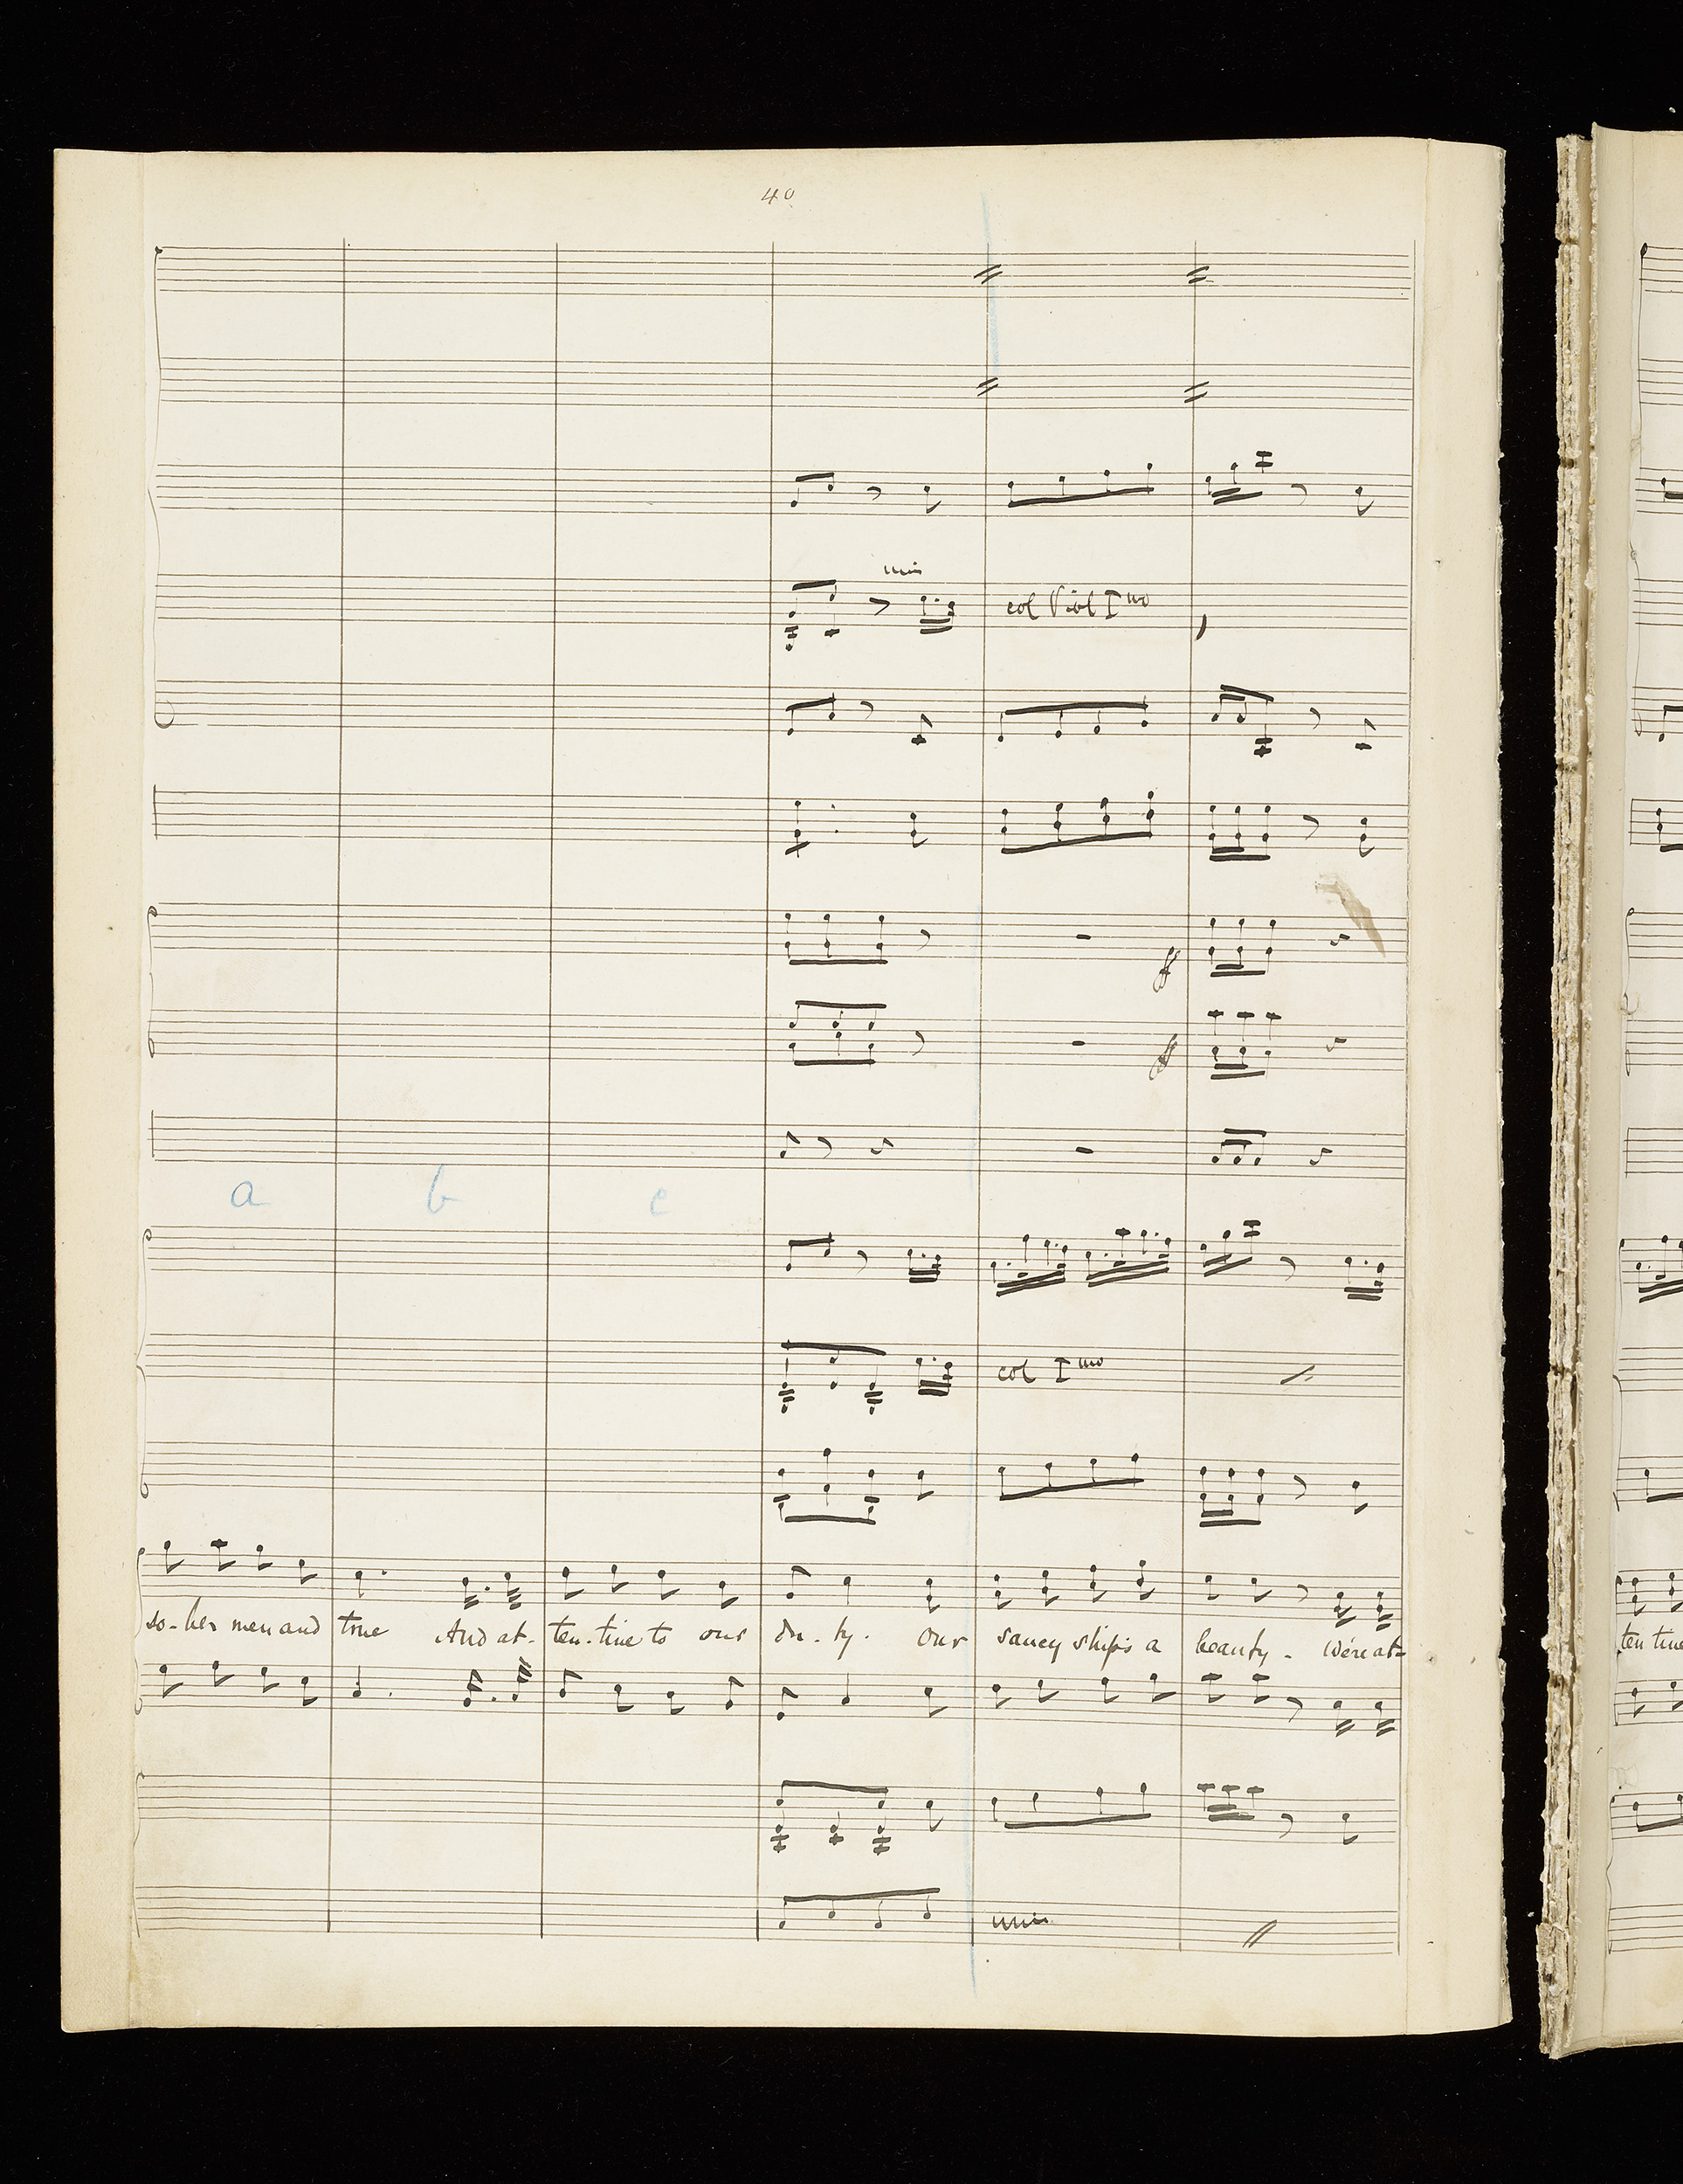 40
unis
col Viol Imo
ff
ff
a b c
col Imo
so-ber men and true And at- ten-tive to our du-ty. Our saucy ship's a beauty - We're at=
ten tive
unis